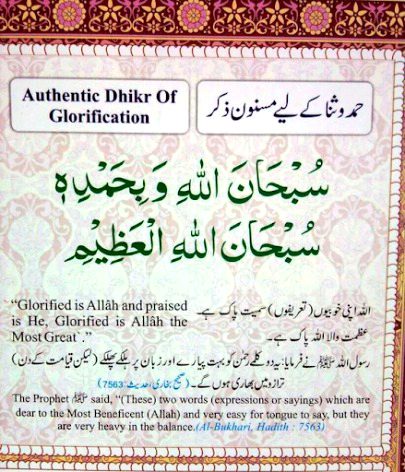 Authentic Dhikr Of
Glorification
حمد وثنا کے لیے مسنون ذکر
سُبْحَانَ اللهِ وَبِحَمْدِهٖ
سُبْحَانَ اللهِ الْعَظِيْمِ
“Glorified is Allâh and praised
is He, Glorified is Allâh the
Most Great .”
اللہ اپنی خوبیوں (تعریفوں) سمیت پاک ہے۔
عظمت والا اللہ پاک ہے۔
رسول اللہ ﷺ نے فرمایا: یہ دو کلمے رحمٰن کو بہت پیارے اور زبان پر ہلکے پھلکے (لیکن قیامت کے دن)
ترازو میں بھاری ہوں گے۔ (صحیح بخاری، حدیث: 7563)
The Prophet ﷺ said, “(These) two words (expressions or sayings) which are
dear to the Most Beneficent (Allah) and very easy for tongue to say, but they
are very heavy in the balance.(Al-Bukhari, Hadith : 7563)